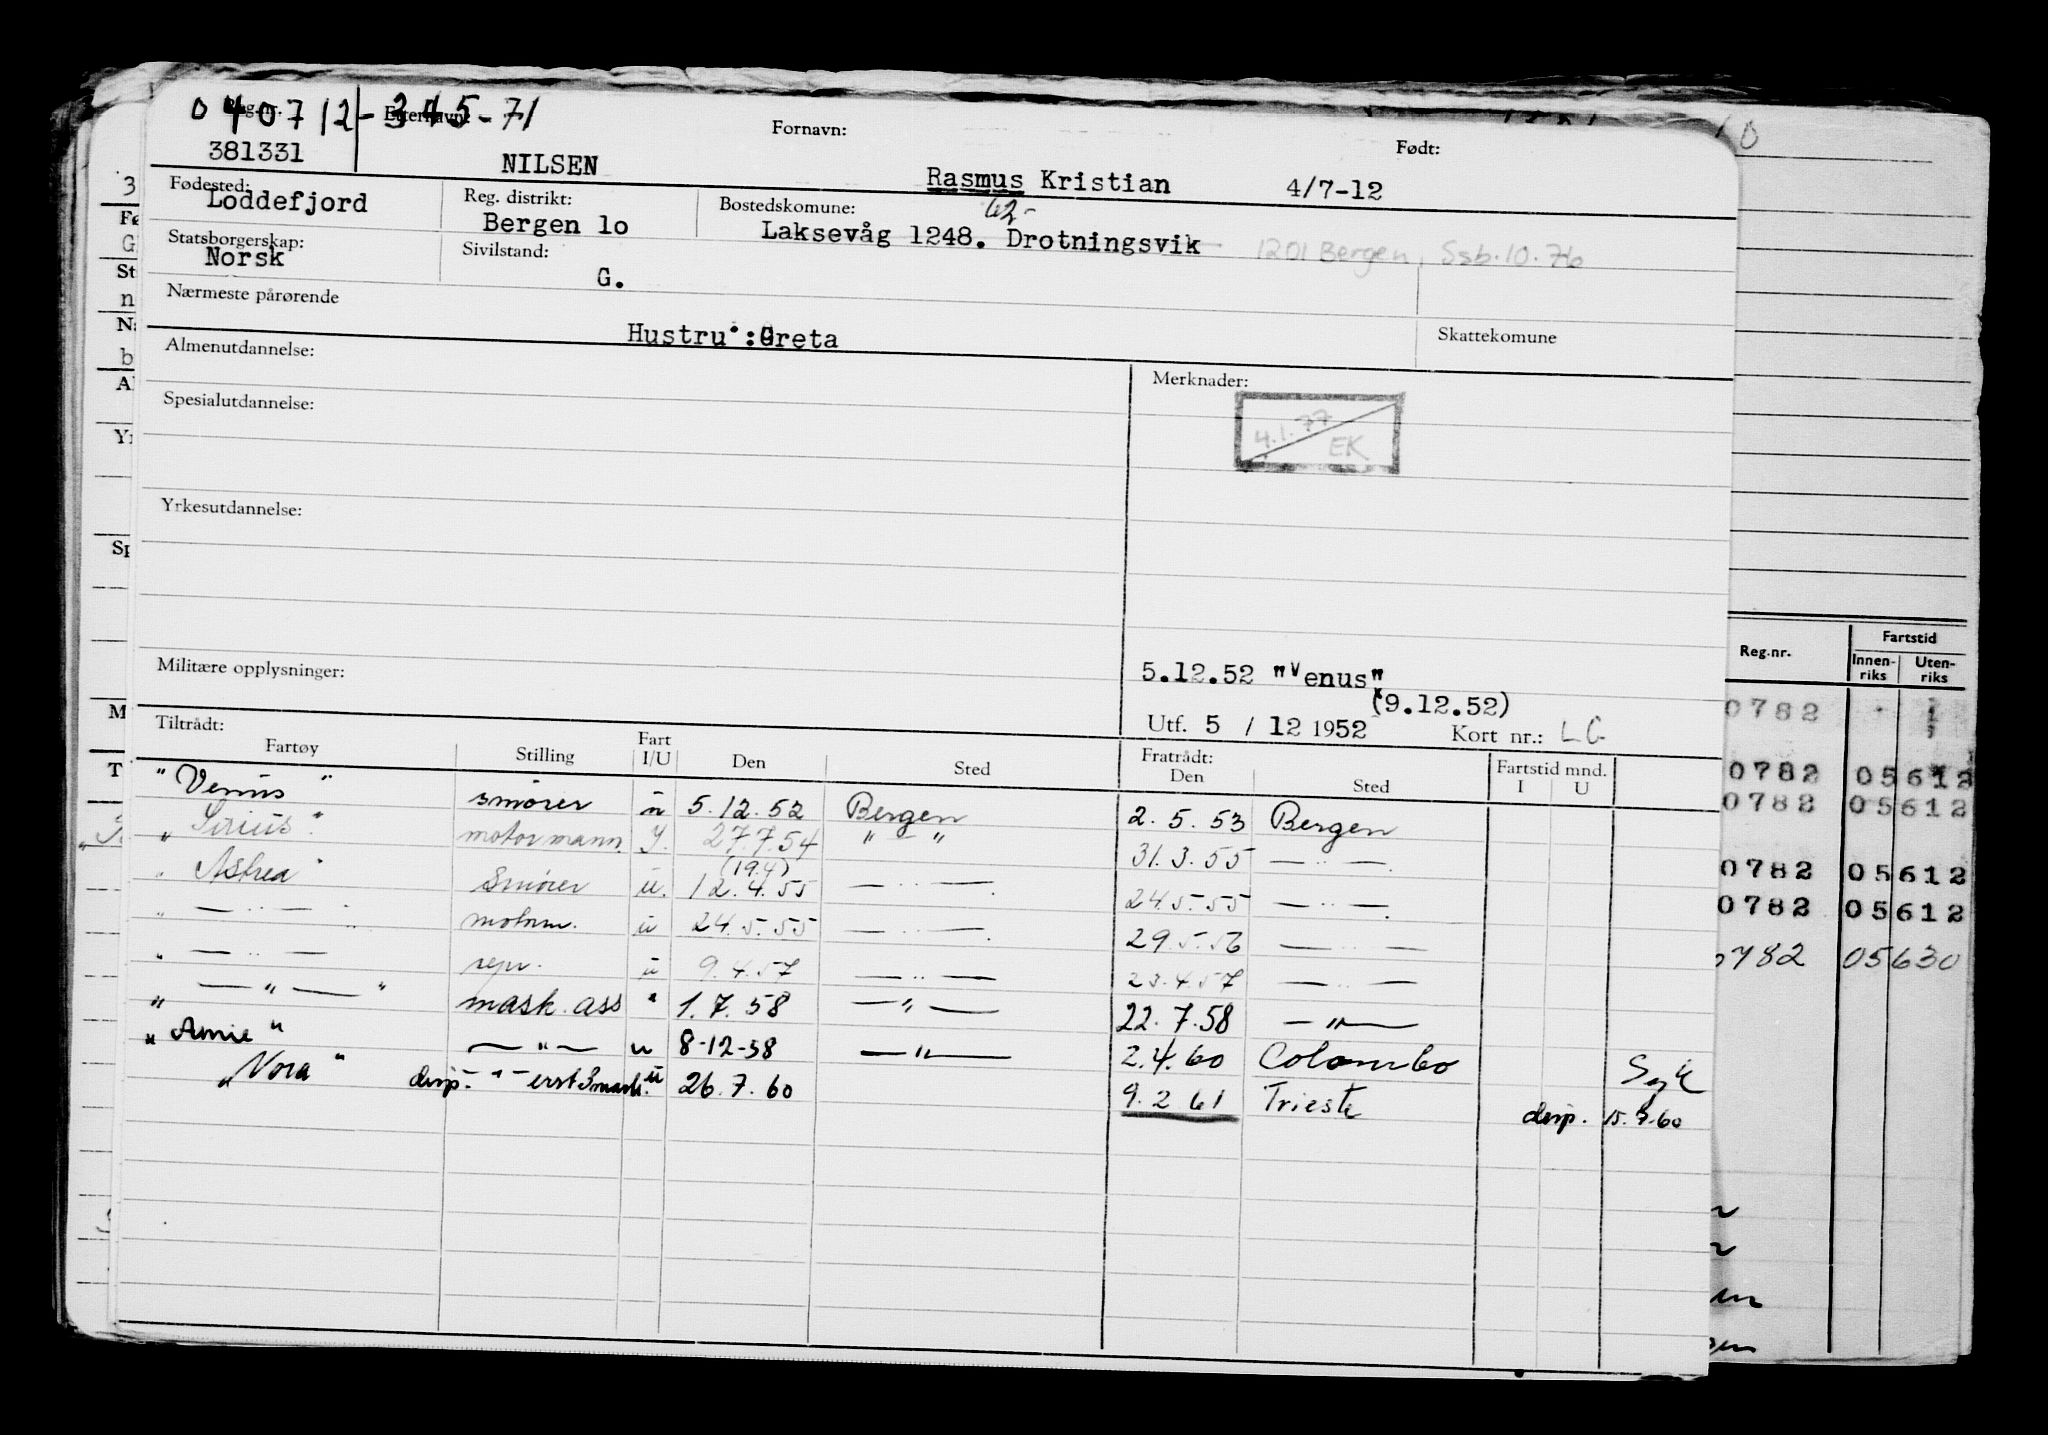 040712-345-71
Reg.nr. Etternavn: Fornavn: Født:
381331 NILSEN Rasmus Kristian 4/7-12
Fødested: Reg. distrikt: Bostedskomune:
Loddefjord Bergen lo Laksevåg 1248. Drotningsvik 1201 Bergen, Ssb. 10.76
Statsborgerskap: Sivilstand:
Norsk G.
Nærmeste pårørende
Hustru :Greta Skattekomune
Almenutdannelse: Merknader:
Spesialutdannelse: 4.1.77 EK
Yrkesutdannelse:
Militære opplysninger: 5.12.52 "Venus"
(9.12.52)
Utf. 5 / 12 1952 Kort nr.: LG
Tiltrådt: Fratrådt:
Fartøy Stilling Fart I/U Den Sted Den Sted Fartstid mnd. I U
"Venus" smører u 5.12.52 Bergen 2.5.53 Bergen
"Sirius" motormann I. 27.7.54 " - " 31.3.55 — " —
(19.4)
" Astrea" Smører u. 12.4.55 — " — 24.5.55 — " —
" — " — " motorm. u 24.5.55 — " — 29.5.56 — " —
" — " — repr. u 9.4.57 — " — 23.4.57 — " —
" — " — " mask.ass " 1.7.58 — " — 22.7.58 — " —
" " — " — u 8-12-58 — " — 2.4.60 Colombo Syk
"Nora" disp. - " - u 26.7.60 9.2.61 Trieste disp. 60
Reg.nr. Fartstid
Innen-riks Uten-riks
0782
0782 05612
0782 05612
0782 05612
0782 05612
0782 05630